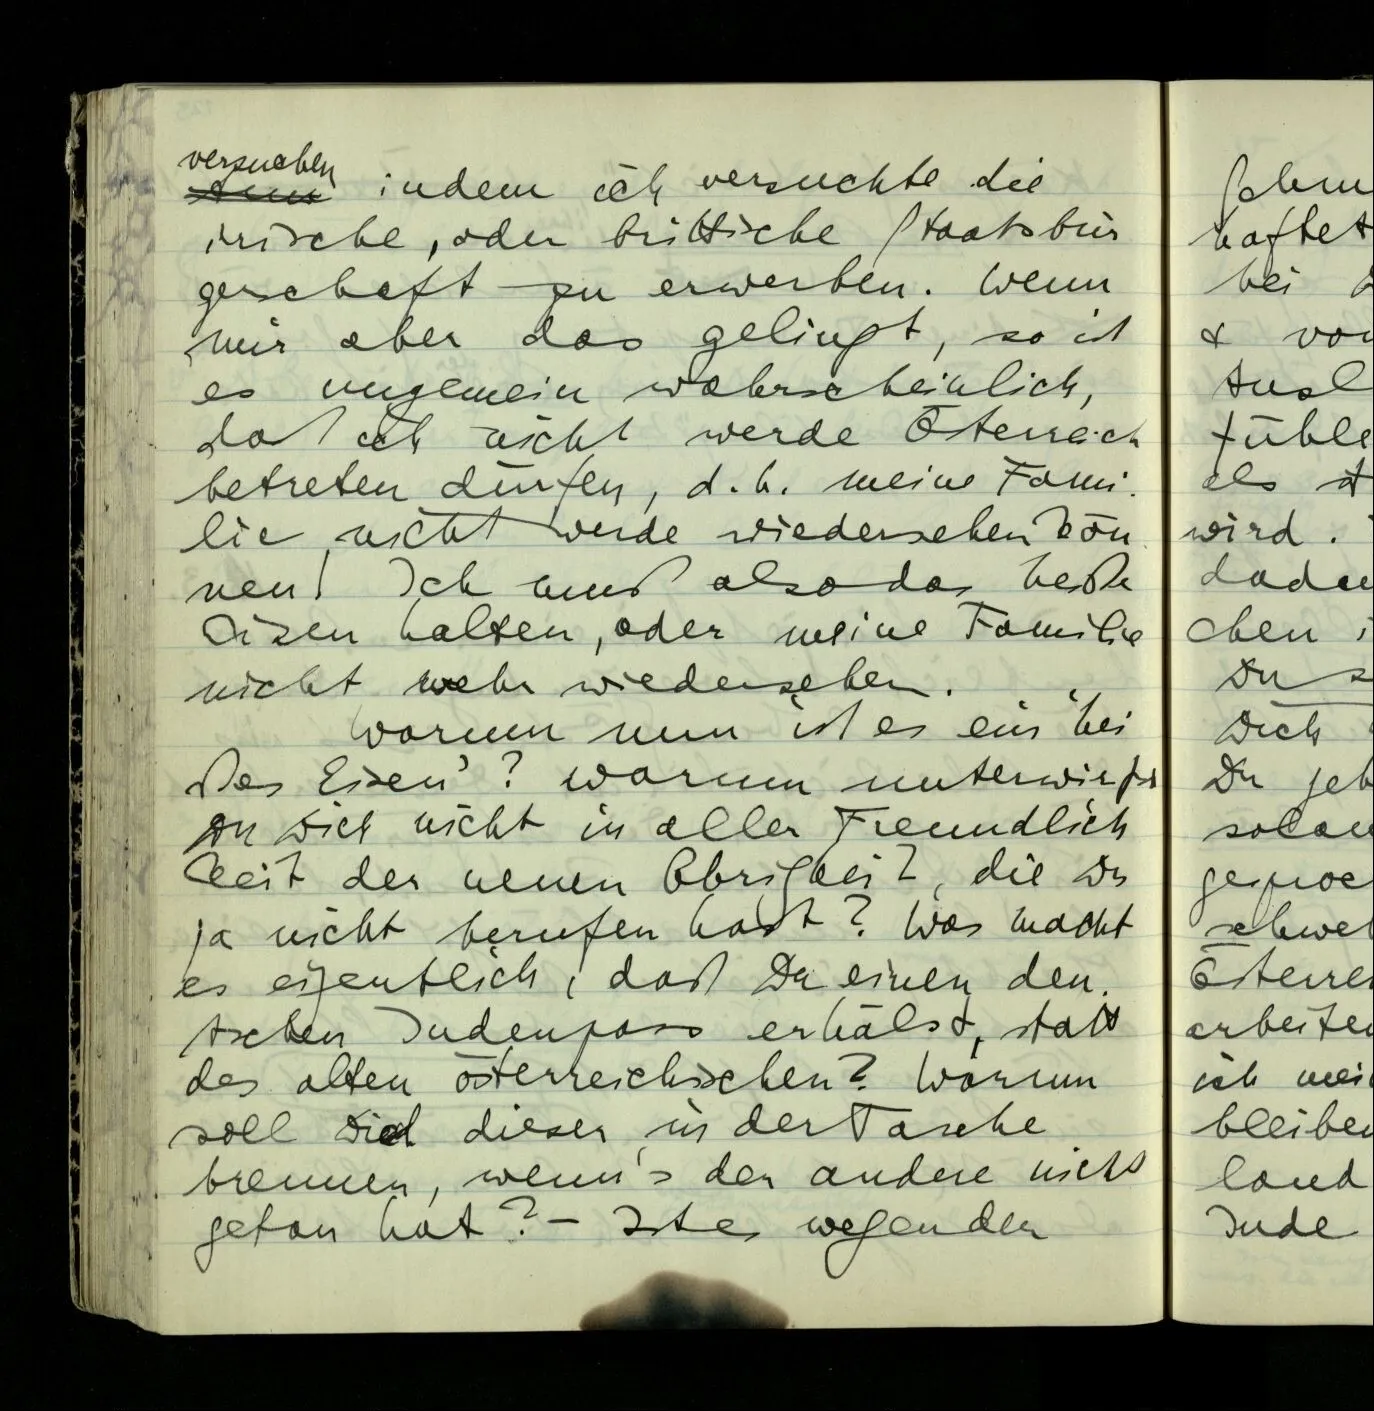 versuchen
indem ich versuchte die
irische, oder brittische Staatsbür
gerschaft zu erwerben. Wenn
mir aber das gelingt, so ist
es ungemein wahrscheinlich,
daß ich nicht werde Österreich
betreten dürfen, d.h. meine Fami.
lie nicht werde wiedersehen kön
nen! Ich muß also das heiße
Eisen halten, oder meine Familie
nicht mehr wiedersehen.
Warum nun ist es ein 'hei
ßes Eisen'? Warum unterwirfst
Du Dich nicht in aller Freundlich
keit der neuen Obrigkeit, die Du
ja nicht berufen hast? Was macht
es eigentlich, daß Du einen deu.
tschen Judenpass erhälst, statt
des alten österreichischen? Warum
soll Dich dieser in der Tasche
brennen, wenn's der andere nicht
getan hat? – Ist es wegen der
haftet
bei
& von
Ausl
fühle
als
wird.
dadu
chen i
Du s
Dich
Du geb
solan
gesproc
schwei
Österrei
arbeiten
ich mei
bleiben
land
Jude